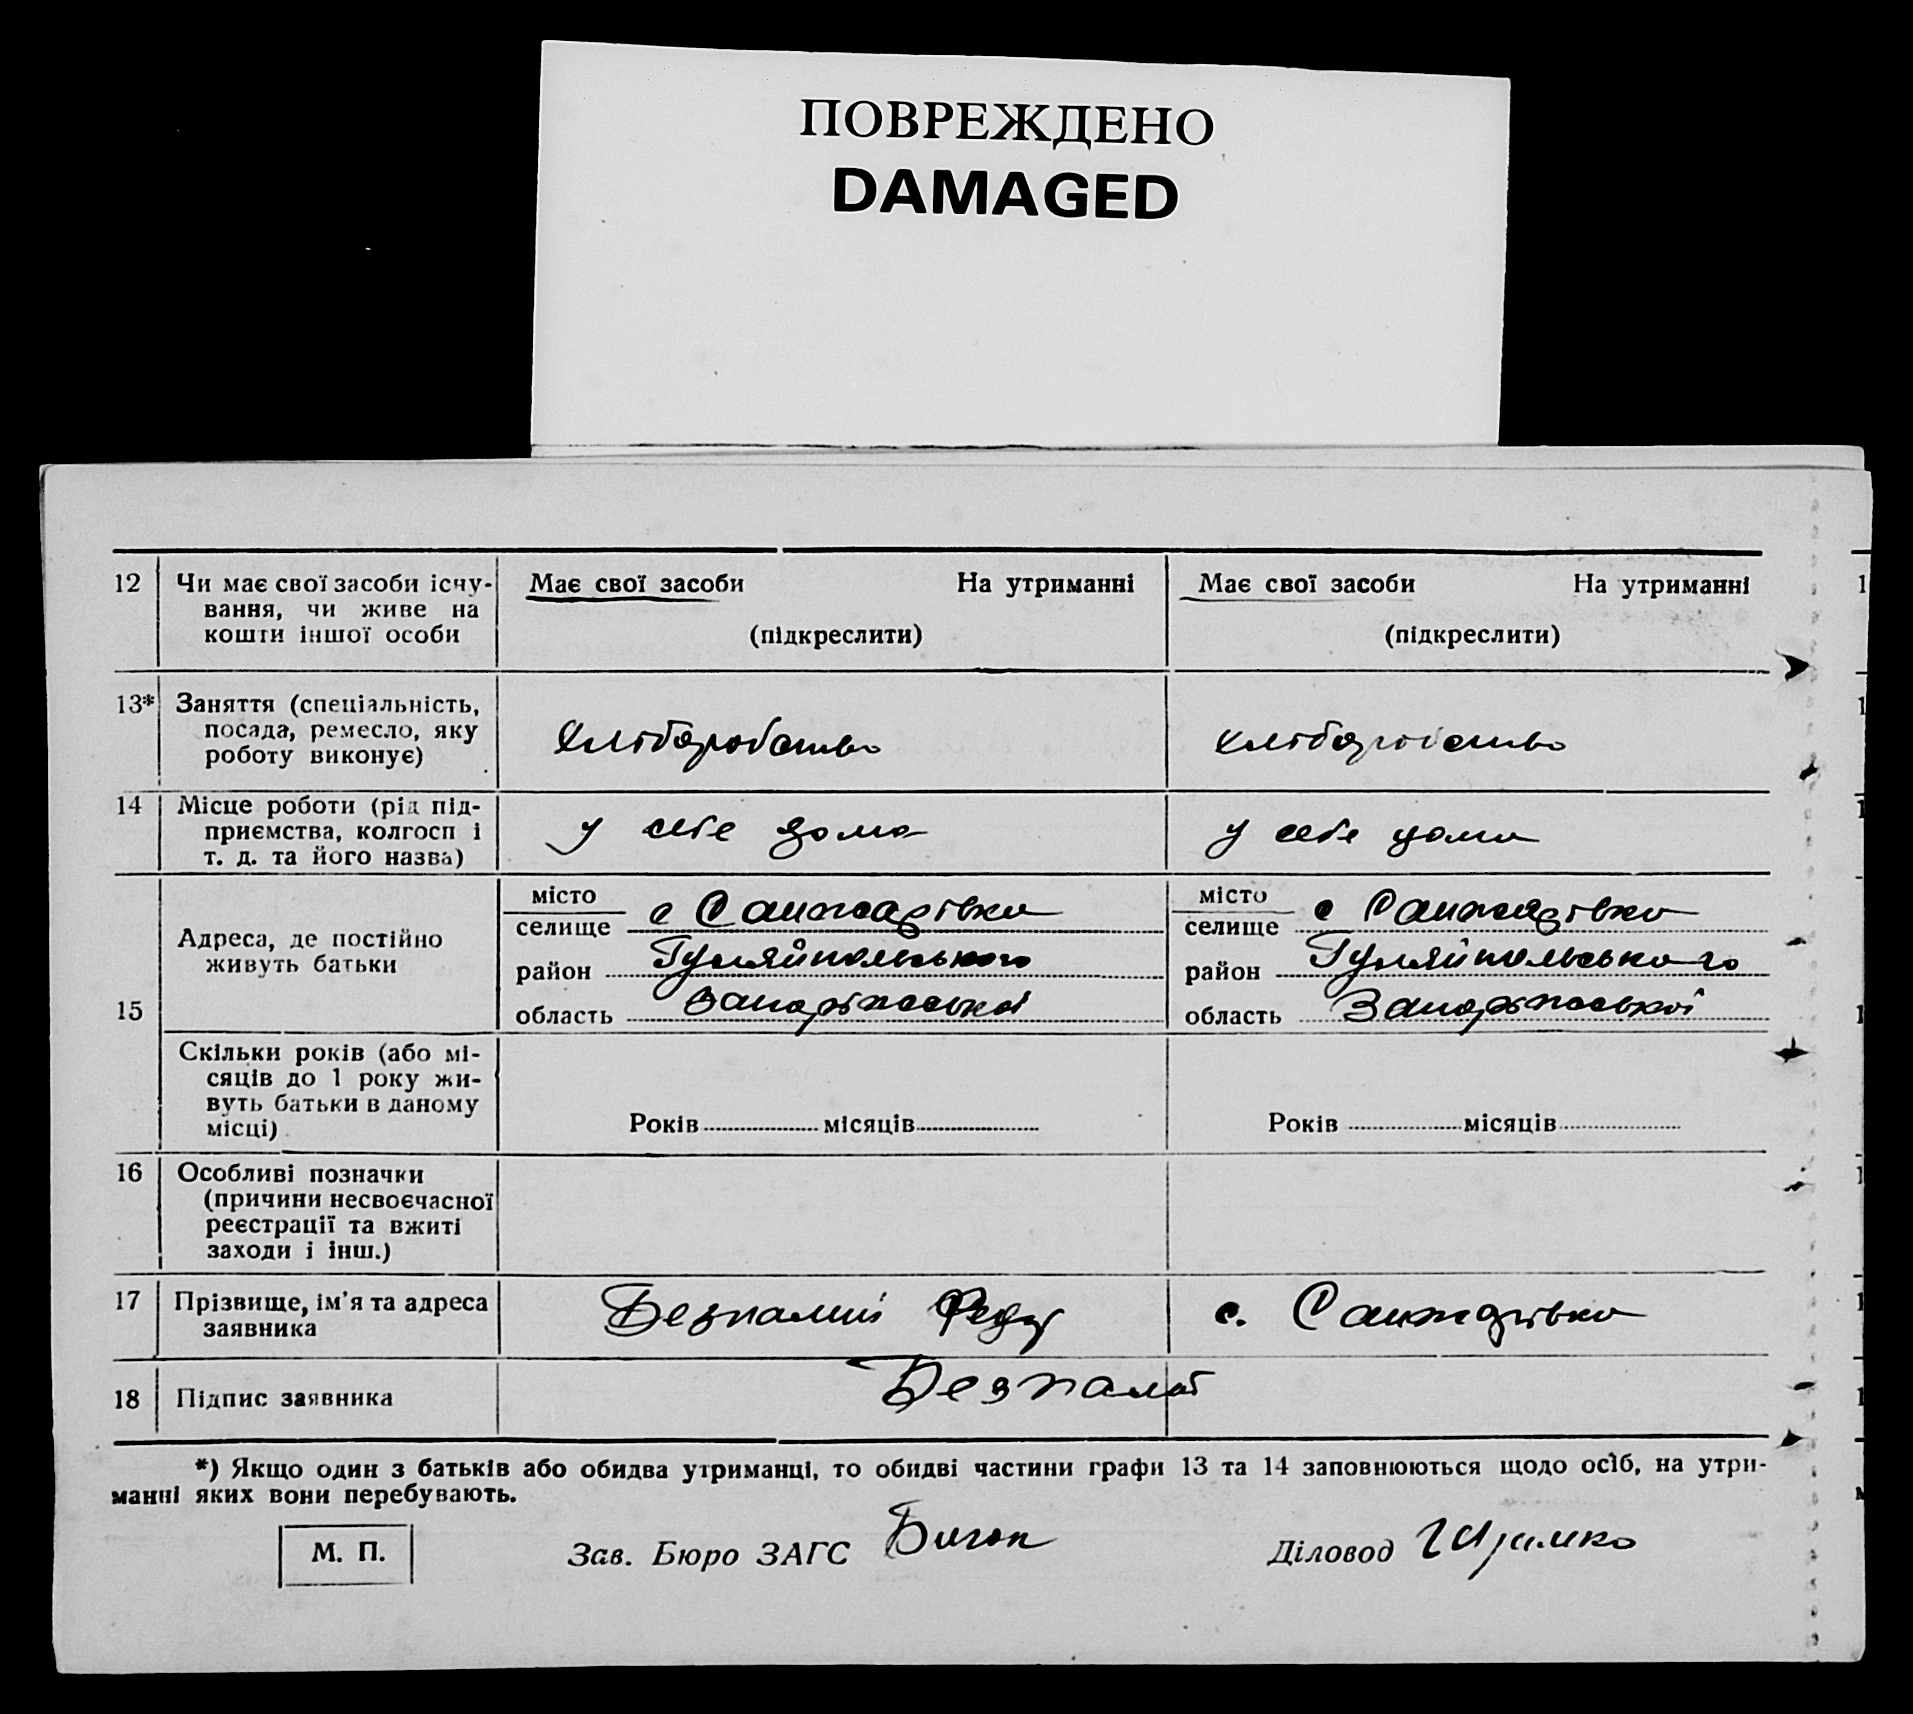 ПОВРЕЖДЕНО
DAMAGED
12 Чи має свої засоби існу-
вання, чи живе на
кошти іншої особи
Має свої засоби На утриманні
(підкреслити)
Має свої засоби На утриманні
(підкреслити)
13* Заняття (спеціальність,
посада, ремесло, яку
роботу виконує)
Хліборобство
хліборобство
14 Місце роботи (рід під-
приємства, колгосп і
т. д. та його назва)
у себе дома
у себе дома
15
Адреса, де постійно
живуть батьки
місто
селище с Санжарівка
район Гуляйпольського
область Запорізької
місто
селище с Санжарівка
район Гуляйпольського
область Запорізької
Скільки років (або мі-
сяців до 1 року жи-
вуть батьки в даному
місці)
Років місяців
Років місяців
16 Особливі позначки
(причини несвоєчасної
реєстрації та вжиті
заходи і інш.)
17 Прізвище, ім'я та адреса
заявника
Безпалий Федір
с. Санжарівка
18 Підпис заявника
Безпалий
*) Якщо один з батьків або обидва утриманці, то обидві частини графи 13 та 14 заповнюються щодо осіб, на утри-
манні яких вони перебувають.
М. П.
Зав. Бюро ЗАГС
Діловод